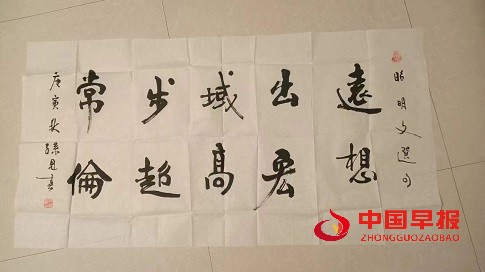 昭明文選句
遠想
出宏
域高
步超
常倫
庚寅秋
中国早报
ZHONGGUOZAOBAO